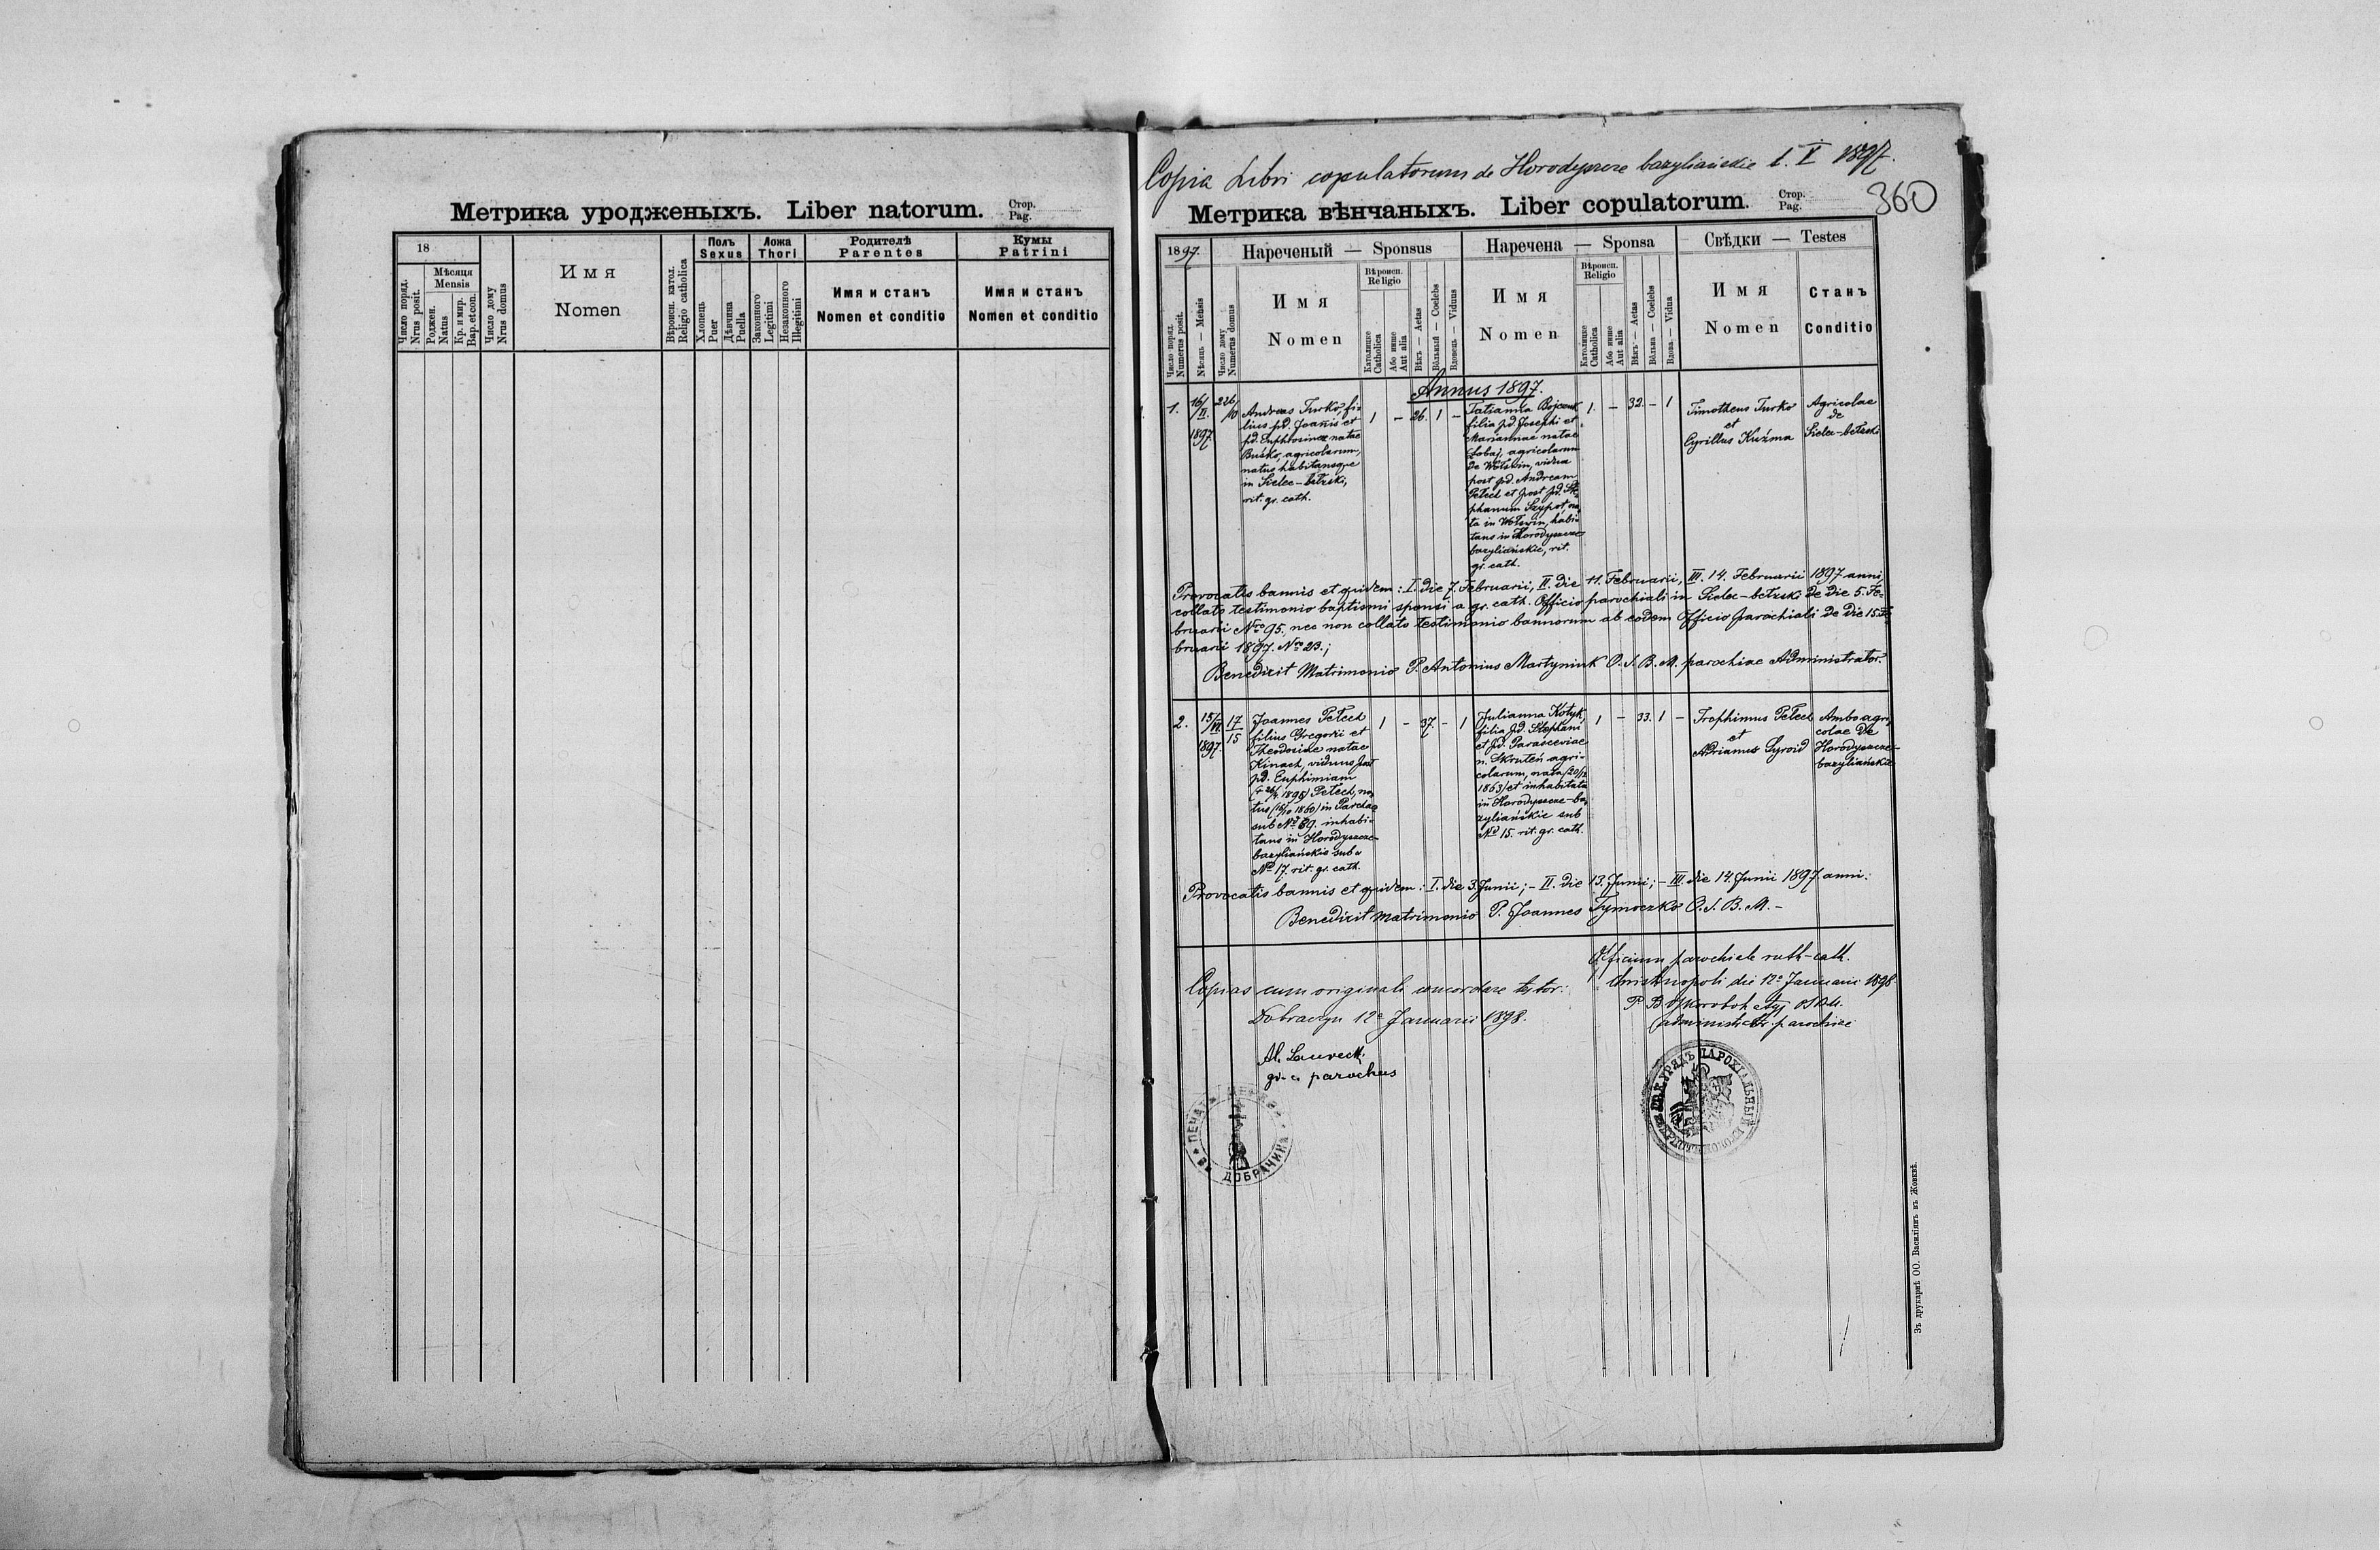 Метрика уродженыхъ. Liber natorum.
Стор.
Pag.
18
Число поряд.
Nrus posit.
Мѣсяця
Mensis
Роджен.
Natus
Кр. и мир.
Bap. et con.
Число дому
Nrus domus
Имя
Nomen
Вѣроисп. катол.
Religio catholica
Полъ
Sexus
Хлопець
Puer
Дѣвчина
Puella
Ложа
Thori
Законного
Legitimi
Незаконного
Illegitimi
Родителѣ
Parentes
Имя и станъ
Nomen et conditio
Кумы
Patrini
Имя и станъ
Nomen et conditio
Copia Libri copulatorum de Horodyszcze bazyliańskie t. V 1897.
360
Метрика вѣнчаныхъ. Liber copulatorum.
Стор.
Pag.
1897.
Число поряд.
Numerus posit.
Мѣсяць — Mensis
Число дому
Numerus domus
Нареченый — Sponsus
Имя
Nomen
Вѣроисп.
Religio
Католицке
Catholica
Або инше
Aut alia
Вѣкъ — Aetas
Вôльный — Coelebs
Вдовець — Viduus
Наречена — Sponsa
Имя
Nomen
Вѣроисп.
Religio
Католицке
Catholica
Або инше
Aut alia
Вѣкъ — Aetas
Вôльна — Coelebs
Вдова — Vidua
Свѣдки — Testes
Имя
Nomen
Станъ
Conditio
Annus 1897.
1.
16/II.
1897
226/10
Andreas Turko, fi-
lius pd. Joanis et
pd. Euphrosinae natae
Buśko, agricolarum,
natus habitansque
in Sielec-bełzski,
rit. gr. cath.
1 - 26. 1 -
Tatianna Bojczuk
filia pd. Josephi et
Mariannae natae
Łobaj, agricolarum
de Wołswin, vidua
post pd. Andream
Petech et post pd. Ste-
phanum Szypot, na-
ta in Wołswin, habi-
tans in Horodyszcze
bazyliańskie, rit.
gr. cath.
1. - 32. - 1
Timotheus Turko
et
Cyrillus Kuźma
Agricolae
de
Sielec-bełzski
Provocatis bannis et quidem: I. die 7. Februarii, II. die 11. Februarii, III. 14. Februarii 1897 anni,
collato testimonio baptismi sponsi a gr. cath. Officio parochiali in Sielec-bełzski de die 5. Fe-
bruarii Nro 95. nec non collato testimonio bannorum ab eodem Officio parochiali de die 15. Fe-
bruarii 1897. Nro 23.;
Benedixit Matrimonio P. Antonius Martyniuk O.S.B.M. parochiae Administrator.
2.
15/VI
1897.
17
15
Joannes Petech
filius Gregorii et
Theodosiae natae
Kinach, viduus post
pd. Euphimiam
Petech, na-
tus in Parchacz
sub No 89. inhabi-
tans in Horodyszcze-
bazyliańskie sub
No 17. rit. gr. cath.
1 - 37. - 1
Julianna Kotyk,
filia pd. Stephani
et pd. Parasceviae
n. Skruteń agri-
colarum, nata
1863) et inhabitata
in Horodyszcze-ba-
zyliańskie sub
No 15. rit. gr. cath.
1 - 33. 1 -
Trophimus Petech
et
Adrianus Syroid
Ambo agri-
colae de
Horodyszcze-
bazyliańskie
Provocatis bannis et quidem: I. die 3. Junii; - II. die 13. Junii; - III. die 14. Junii 1897. anni.
Benedixit matrimonio P. Joannes Tymoczko O.S.B.M. -
Copias cum originale concordare testor:
Dobraczyn 12a Januarii 1898.
Al. Laureck.
gr. c. parochus
Officium parochiale ruth-cath.
Christinopoli die 12a Januarii 1898
administrator parochiae
ПЕЧАТЬ
ДОБРАЧИНА
УРЯДЪ ПАРОХІАЛЬНЫЙ
Зъ друкарнѣ ОО. Василіянъ въ Жовквѣ.